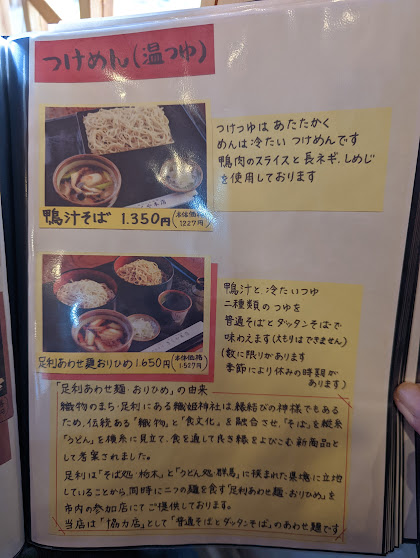 つけめん(温つゆ)
つけつゆは あたたかく
めんは冷たい つけめんです
鴨肉のスライスと長ネギ、しめじ
を使用しております
鴨汁そば 1.350円(本体価格1227円)
鴨汁と、冷たいつゆ
二種類のつゆを
普通そばとダッタンそばで
味わえます(大もりはできません)
(数に限りがあります
季節により休みの時期が
あります)
足利あわせ麺おりひめ1.650円(本体価格1.500円)
「足利あわせ麺・おりひめ」の由来
織物のまち・足利にある織姫神社は、縁結びの神様でもある
ため、伝統ある「織物」と「食文化」を融合させ、「そば」を縦糸
「うどん」を横糸に見立て、食を通して良き縁をよびこむ新商品と
して考案されました。
足利は「そば処・栃木」と「うどん処・群馬」に挟まれた県境に立地
していることから、同時に二つの麺を食す「足利あわせ麺・おりひめ」を
市内の参加店にてご提供しております。
当店は「協力店」として「普通そばとダッタンそば」のあわせ麺です